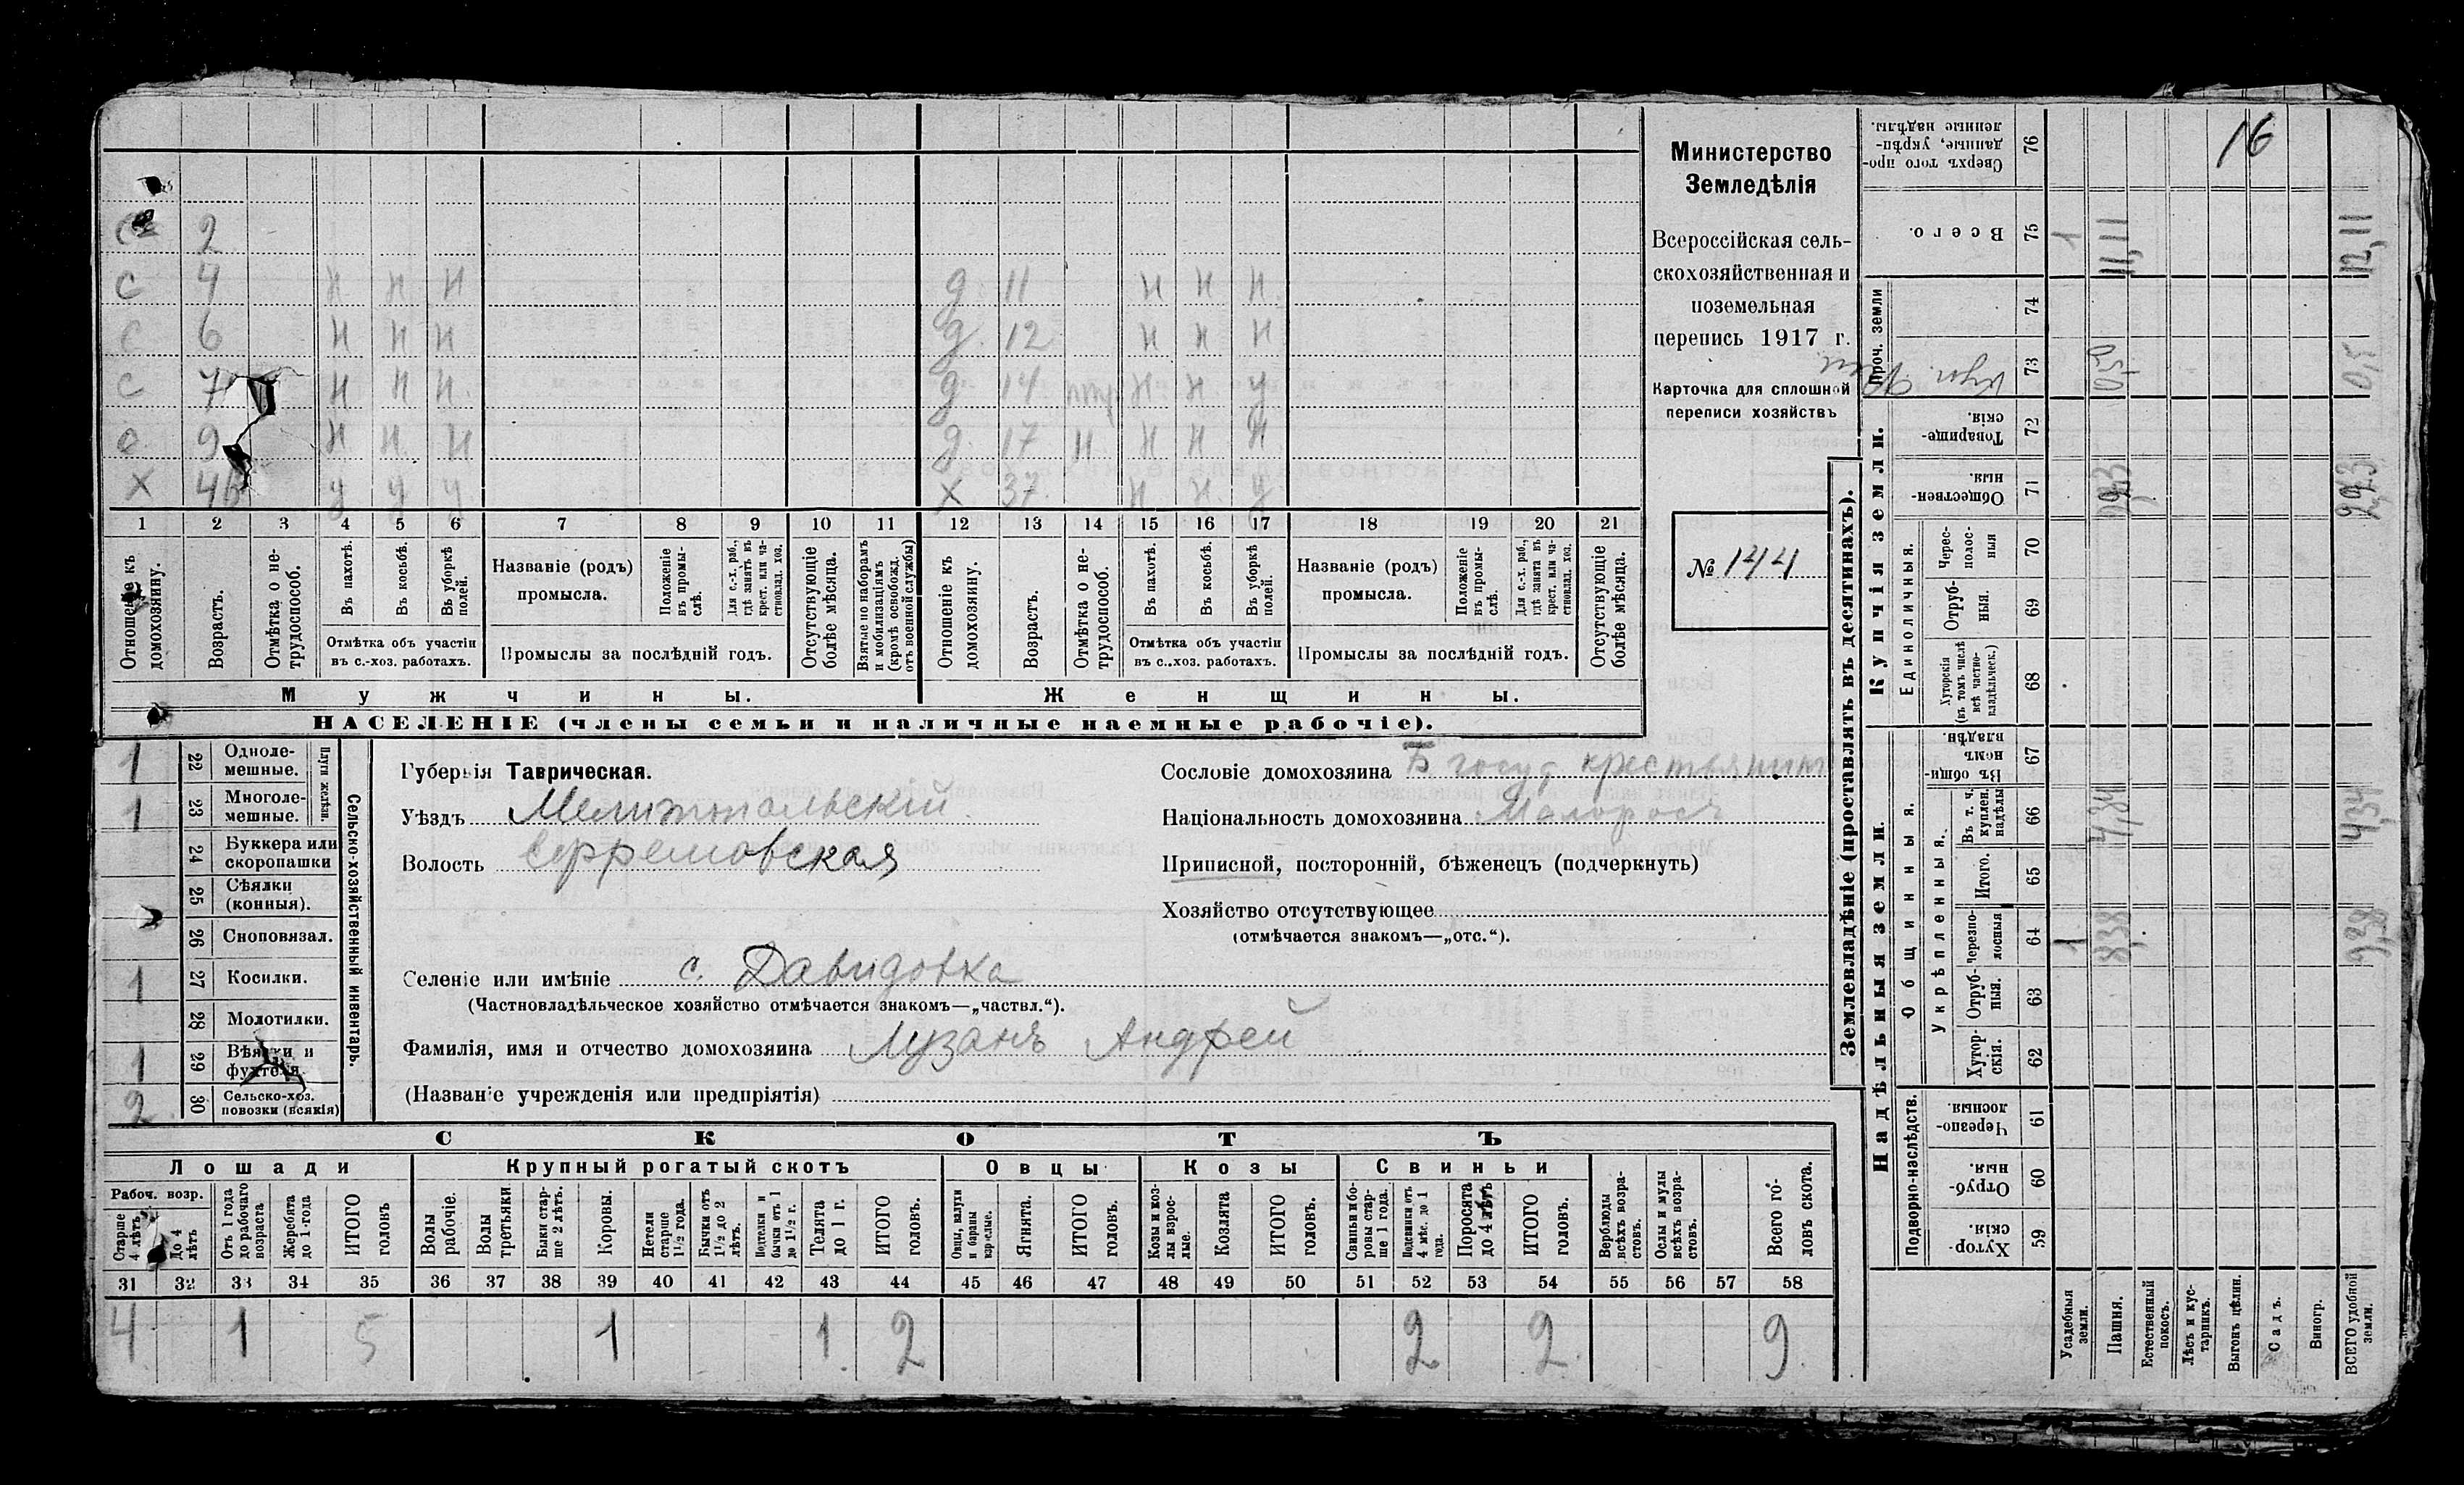 16
с 2
с 4 н н н д 11 н н н
с 6 н н н д. 12 н н н
с 7 н н н. д 14 н н. у
с 9 н н. н д. 17 н. н н н
х 46 у у у. х 37. н н. у
1 2 3 4 5 6 7 8 9 10 11 12 13 14 15 16 17 18 19 20 21
Отношеніе къ домохозяину.
Возрастъ.
Отмѣтка о не-
трудоспособ.
Въ пахотѣ.
Въ косьбѣ.
Въ уборкѣ
полей.
Отмѣтка объ участіи
въ с.-хоз. работахъ.
Названіе (родъ)
промысла.
Положеніе
въ промы-
слѣ.
Для с.-х. раб.,
гдѣ занятъ въ
крест. или ча-
стновлад. хоз.
Промыслы за послѣдній годъ.
Отсутствующіе
болѣе мѣсяца.
Взятые по наборамъ
и мобилизаціямъ
(кромѣ освобожд.
отъ военной службы)
Отношеніе къ
домохозяину.
Возрастъ.
Отмѣтка о не-
трудоспособ.
Въ пахотѣ.
Въ косьбѣ.
Въ уборкѣ
полей.
Отмѣтка объ участіи
въ с..хоз. работахъ.
Названіе (родъ)
промысла.
Положеніе
въ промы-
слѣ.
Для с.-х. раб.,
гдѣ занята въ
крест. или ча-
стновлад. хоз.
Промыслы за послѣдній годъ.
Отсутствующіе
болѣе мѣсяца.
Мужчины.
Женщины.
НАСЕЛЕНІЕ (члены семьи и наличные наемные рабочіе).
Министерство
Земледѣлія
Всероссійская сель-
скохозяйственная и
поземельная
перепись 1917 г.
Карточка для сплошной
переписи хозяйствъ
№ 144
1 22 Одноле-
мешные.
1 23 Многоле-
мешные.
Плуги желѣзн.
24 Буккера или
скоропашки
25 Сѣялки
(конныя).
26 Сноповязал.
1 27 Косилки.
28 Молотилки.
1 29 Вѣялки и
фухтеля.
2 30 Сельско-хоз.
повозки (всякія)
Сельско-хозяйственный инвентарь.
Губернія Таврическая.
Уѣздъ Мелитопольскій
Волость Ефремовская
Селеніе или имѣніе с. Давидовка
(Частновладѣльческое хозяйство отмѣчается знакомъ—„частвл.“).
Фамилія, имя и отчество домохозяина Лузанъ Андрей
(Названіе учрежденія или предпріятія)
Сословіе домохозяина Б. госуд крестьянинъ
Національность домохозяина Малороссъ
Приписной, посторонній, бѣженецъ (подчеркнуть)
Хозяйство отсутствующее
(отмѣчается знакомъ—„отс.“).
СКОТЪ
Лошади
Крупный рогатый скотъ
Овцы
Козы
Свиньи
Рабоч. возр.
Старше
4 лѣтъ
До 4
лѣтъ
Отъ 1 года
до рабочаго
возраста
Жеребята
до 1 года
ИТОГО
головъ
Волы
рабочіе.
Волы
третьяки
Быки стар-
ше 2 лѣтъ.
Коровы.
Нетели
старше
1½ года.
Бычки отъ
1½ до 2
лѣтъ.
Подтелки и
бычки отъ 1
до 1½ г.
Телята
до 1 г.
ИТОГО
головъ.
Овцы, валухи
и бараны
взрослые.
Ягнята.
ИТОГО
головъ.
Козы и коз-
лы взрос-
лые.
Козлята
ИТОГО
головъ.
Свиньи и бо-
ровы стар-
ше 1 года.
Подсвинки отъ
4 мѣс. до 1
года.
Поросята
до 4
ИТОГО
головъ.
Верблюды
всѣхъ возра-
стовъ.
Ослы и мулы
всѣхъ возра-
стовъ.
Всего го-
ловъ скота.
31 32 33 34 35 36 37 38 39 40 41 42 43 44 45 46 47 48 49 50 51 52 53 54 55 56 57 58
4 1 5 1 1. 2 2 2. 9.
Землевладѣніе (проставлять въ десятинахъ).
Надѣльныя земли.
Купчія земли.
Проч. земли
Подворно-наслѣдств.
Общинныя.
Укрѣпленныя.
Единоличныя.
Сверхъ того про-
данные, укрѣп-
ленные надѣлы.
76
Всего. 75 1 11,11 12,11
74
73 0,5
Товарище-
скія. 72
Обществен-
ныя. 71 2,93
Черес-
полос-
ныя 70
Отруб-
ныя. 69
Хуторскія
(въ томъ числѣ
всѣ частно-
владѣльческ.) 68
Въ общин-
номъ
владѣн. 67
Въ т. ч.
куплен.
надѣлы 66 4,34 4,34
Итого. 65
черезпо-
лосныя 64 1 8,38 9,38
Отруб-
ныя. 63
Хутор-
скія. 62
Черезпо-
лосныя. 61
Отруб-
ныя. 60
Хутор-
скія. 59
Усадебныя
земли.
Пашня.
Естественный
покосъ.
Лѣсъ и кус-
тарникъ.
Выгонъ цѣлин.
Садъ.
Виногр.
ВСЕГО удобной
земли.